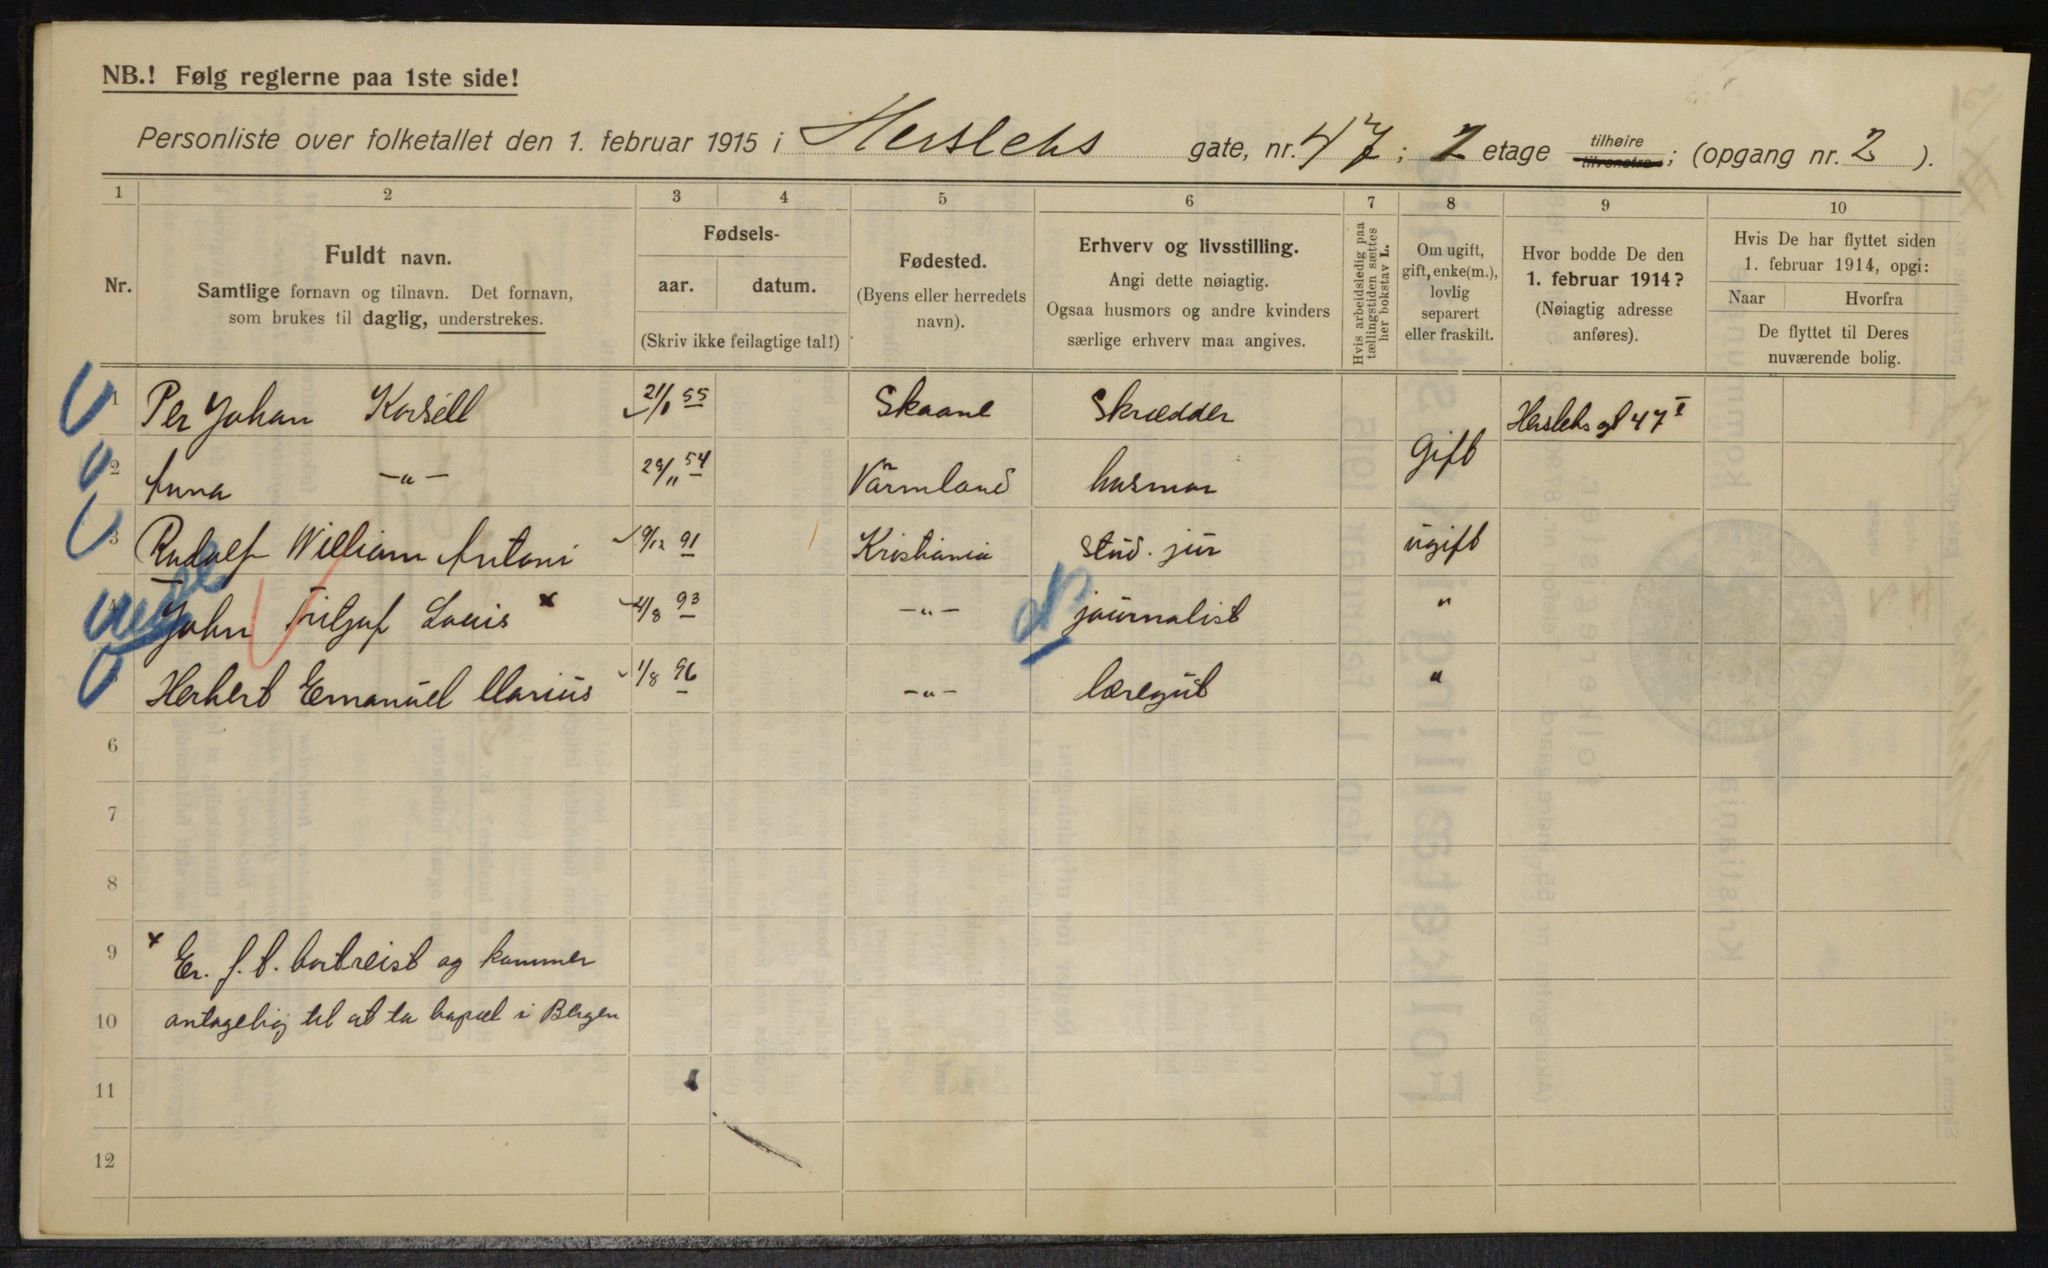 NB.! Følg reglerne paa 1ste side!
Personliste over folketallet den 1. februar 1915 i Herslebs gate, nr. 47; 2 etage tilhøire tilvenstre; (opgang nr. 2).
1 2 3 4 5 6 7 8 9 10
Nr.
Fuldt navn.
Samtlige fornavn og tilnavn. Det fornavn,
som brukes til daglig, understrekes.
Fødsels-
aar. datum.
(Skriv ikke feilagtige tal!)
Fødested.
(Byens eller herredets
navn).
Erhverv og livsstilling.
Angi dette nøiagtig.
Ogsaa husmors og andre kvinders
særlige erhverv maa angives.
Hvis arbeidsledig paa
tællingstiden sættes
her bokstav L.
Om ugift,
gift, enke(m.),
lovlig
separert
eller fraskilt.
Hvor bodde De den
1. februar 1914?
(Nøiagtig adresse
anføres).
Hvis De har flyttet siden
1. februar 1914, opgi:
Naar Hvorfra
De flyttet til Deres
nuværende bolig.
1 Per Johan Korséll 55 Skaane Skrædder Herslebs gt 47 I
2 Anna -„- 29/11 54 Värmland husmor Gift
3 Rudolf William Antoni 19/12 91 Kristiania stud. jur ugift
4 John Fritjof Louis x /8 93 -„- journalist „
Herbert Emanuel Marius 1/8 96 -„- læregut „
6
7
8
9 x Er. f. t. bortreist og kommer
10 antagelig til at ta bopæl i Bergen
11
12